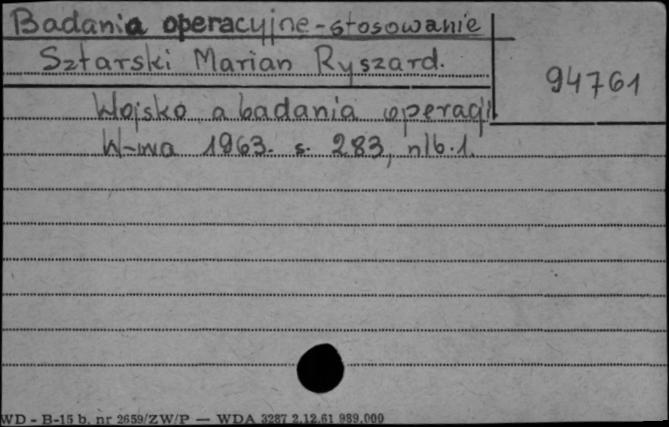 Badania operacyjne-stosowanie
Sztarski Marian Ryszard.
94761
Wojsko a badania operacji
W-wa 1963. s. 283, nlb.1.
WD - B-15 b. nr 2659/ZW/P — WDA 3287 2.12.61 989.000